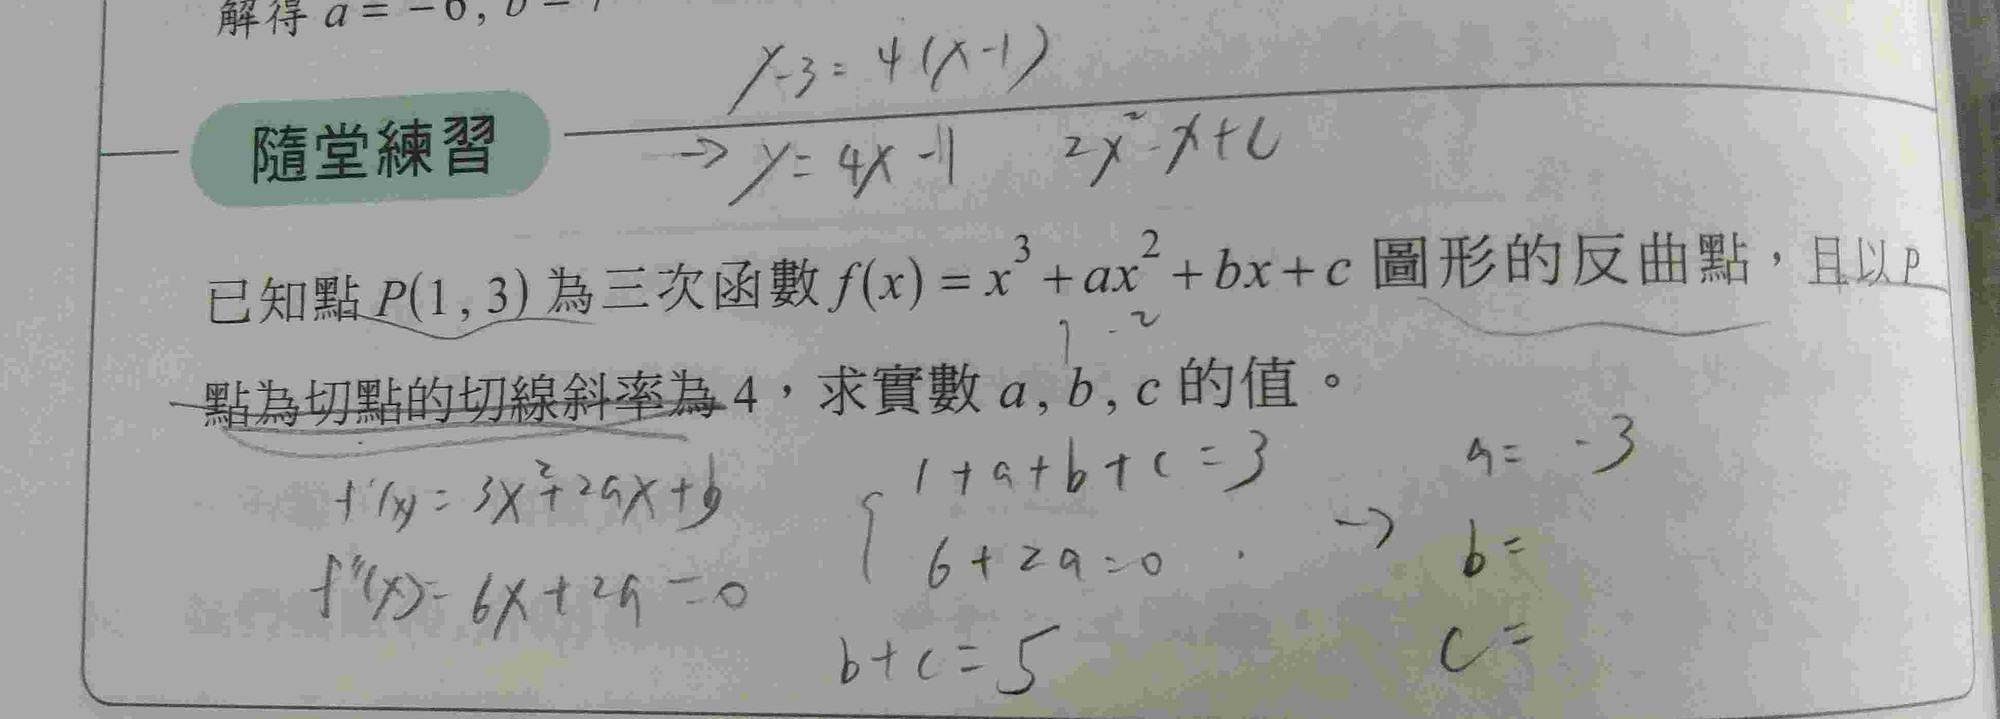 解得 a = −6, b
y-3 = 4(x-1)
隨堂練習
→ y = 4x-11 2x²-x+c
已知點 P(1, 3) 為三次函數 f(x) = x³ + ax² + bx + c 圖形的反曲點，且以 P
點為切點的切線斜率為 4，求實數 a, b, c 的值。
f'(x) = 3x²+2ax+b
1+a+b+c=3
a= -3
f''(x)= 6x+2a=0
6+2a=0
→ b=
b+c=5
c=